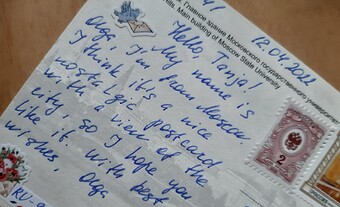 Главное здание Московского государственного универси
Hills. Main building of Moscow State University
12.04.2022
Hello Tanja!
My name is
Olga, I'm from Moscow.
I think it is a nice
nostalgic postcard
with a view of the
city, so I hope you
like it. With best
wishes,
Olga
2
RU-